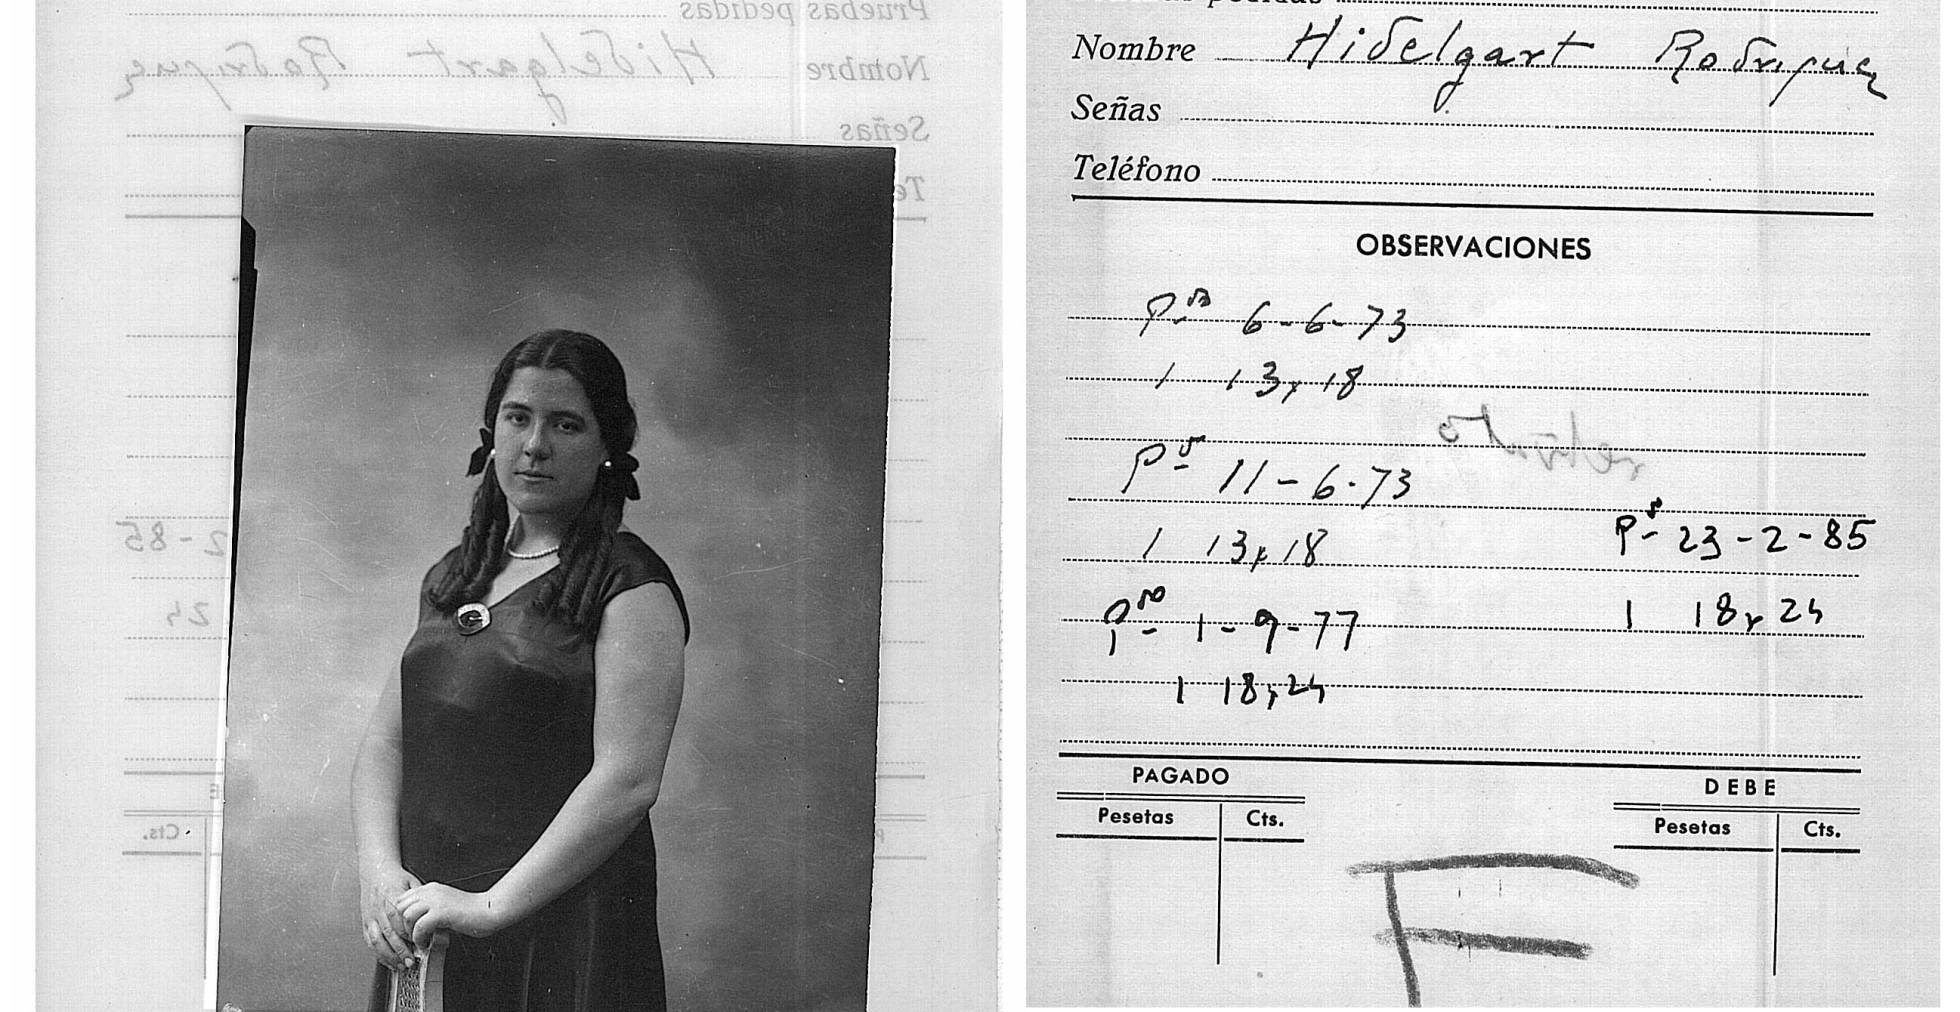 Pruebas pedidas
Nombre Hidelgart Rodriguez
Señas
Te
2-85
24
Cts.
pedidas
Nombre Hidelgart Rodriguez
Señas
Teléfono
OBSERVACIONES
6-6-73
1 13x18
retrato
P 11-6-73
1 13x18
P 23-2-85
1 18x24
P 1-9-77
1 18x24
PAGADO
DEBE
Pesetas Cts.
Pesetas Cts.
F